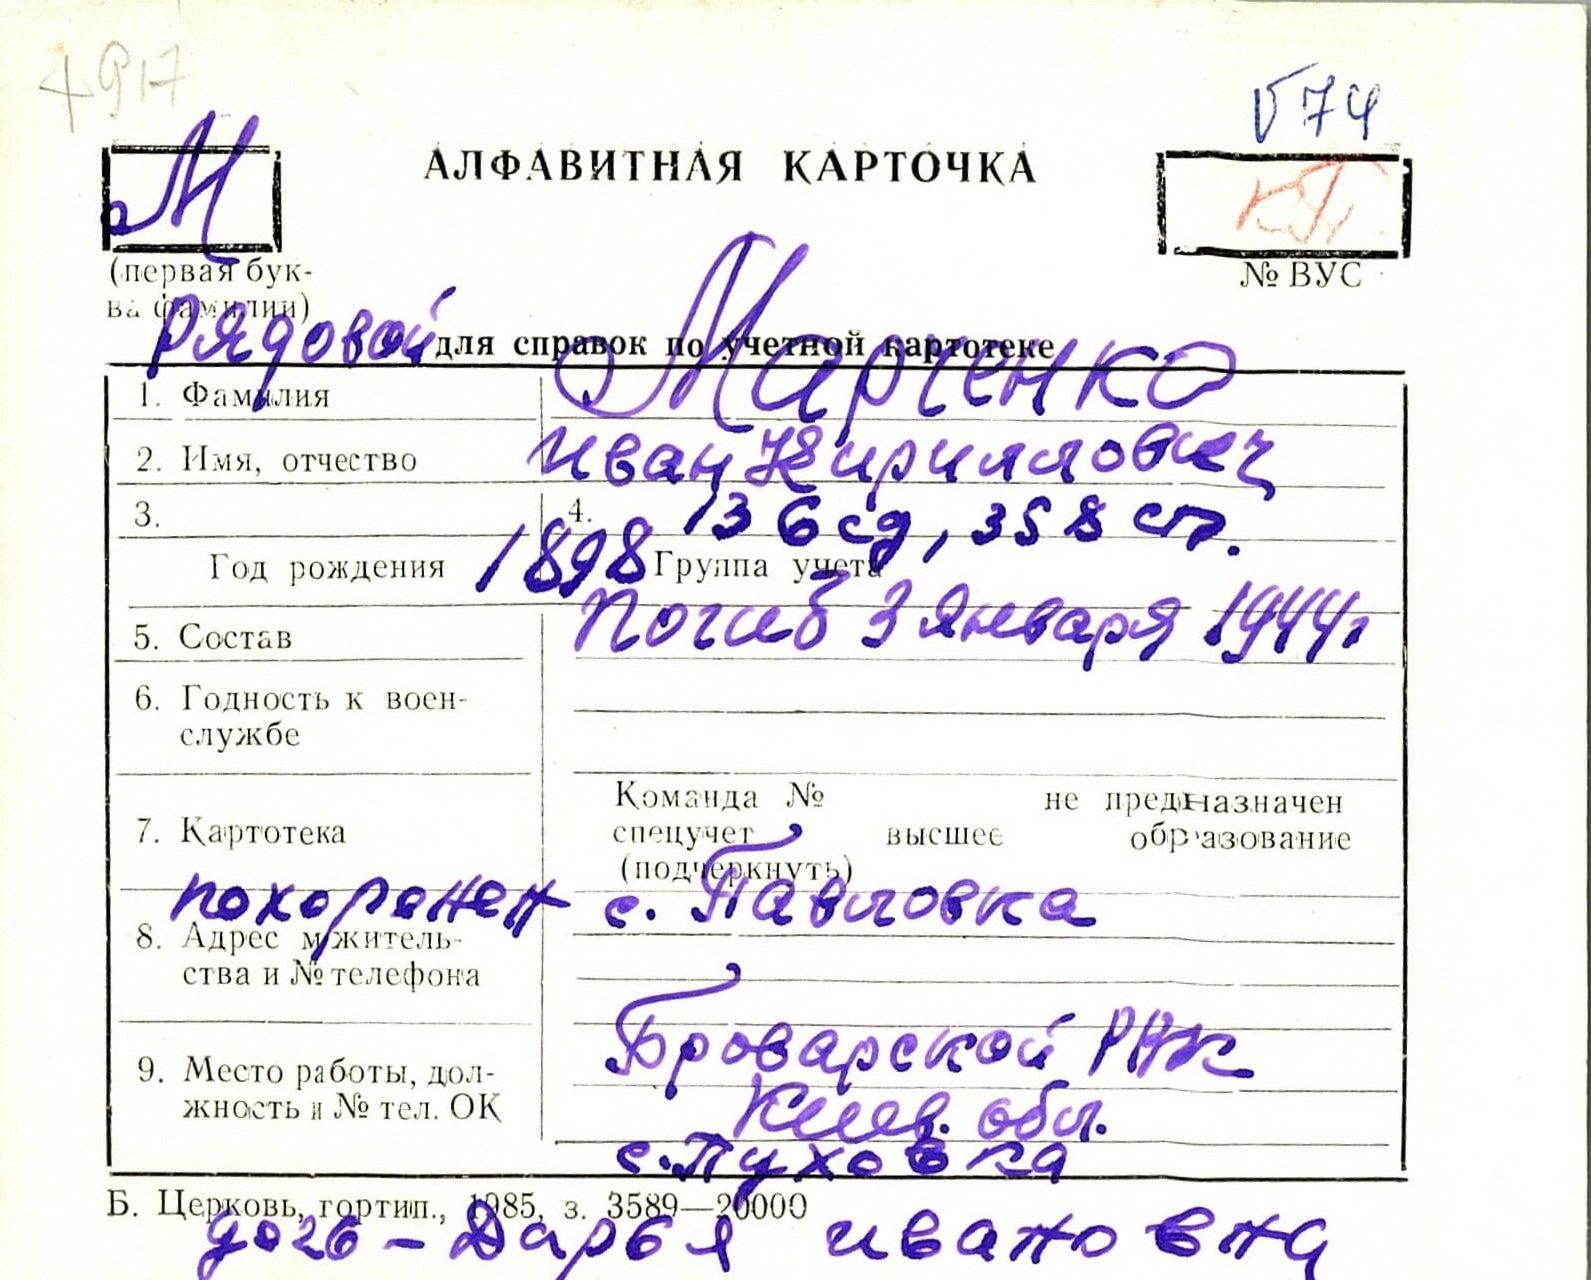 4917
√74
М
АЛФАВИТНАЯ КАРТОЧКА
КП
(первая бук-
ва фамилии)
№ ВУС
Рядовой для справок по учетной картотеке
1. Фамилия Марченко
2. Имя, отчество Иван Кириллович
3. 4. 136 сд, 358 сп.
Год рождения 1898 Группа учета
5. Состав Погиб 3 января 1944г
6. Годность к воен-
службе
Команда № не предназначен
7. Картотека спецучет высшее образование
(подчеркнуть)
похоронен с. Павловка
8. Адрес м/житель-
ства и № телефона
Броварской РВК
9. Место работы, дол-
жность и № тел. ОК Киев. обл.
с. Пуховка
Б. Церковь, гортип., 1985, з. 3589—20000
дочь - Дарья Ивановна